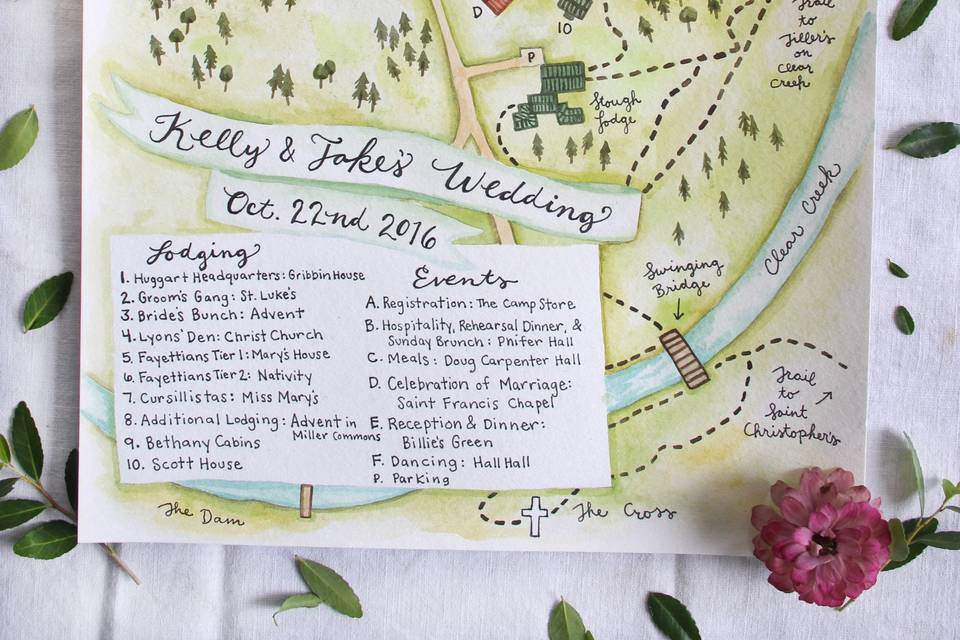 D
10
Trail
to
Jiller's
on
Clear
Creek
P
Stough
Lodge
Kelly & Jake's Wedding
Oct. 22nd 2016
Clear Creek
Swinging
Bridge
Lodging
1. Huggart Headquarters: Gribbin House
2. Groom's Gang: St. Luke's
3. Bride's Bunch: Advent
4. Lyons' Den: Christ Church
5. Fayettians Tier 1: Mary's House
6. Fayettians Tier 2: Nativity
7. Cursillistas: Miss Mary's
8. Additional Lodging: Advent in
Miller Commons
9. Bethany Cabins
10. Scott House
Events
A. Registration: The Camp Store
B. Hospitality, Rehearsal Dinner, &
Sunday Brunch: Phifer Hall
C. Meals: Doug Carpenter Hall
D. Celebration of Marriage:
Saint Francis Chapel
E. Reception & Dinner:
Billie's Green
F. Dancing: Hall Hall
P. Parking
Trail
to
Saint
Christopher's
The Dam
The Cross